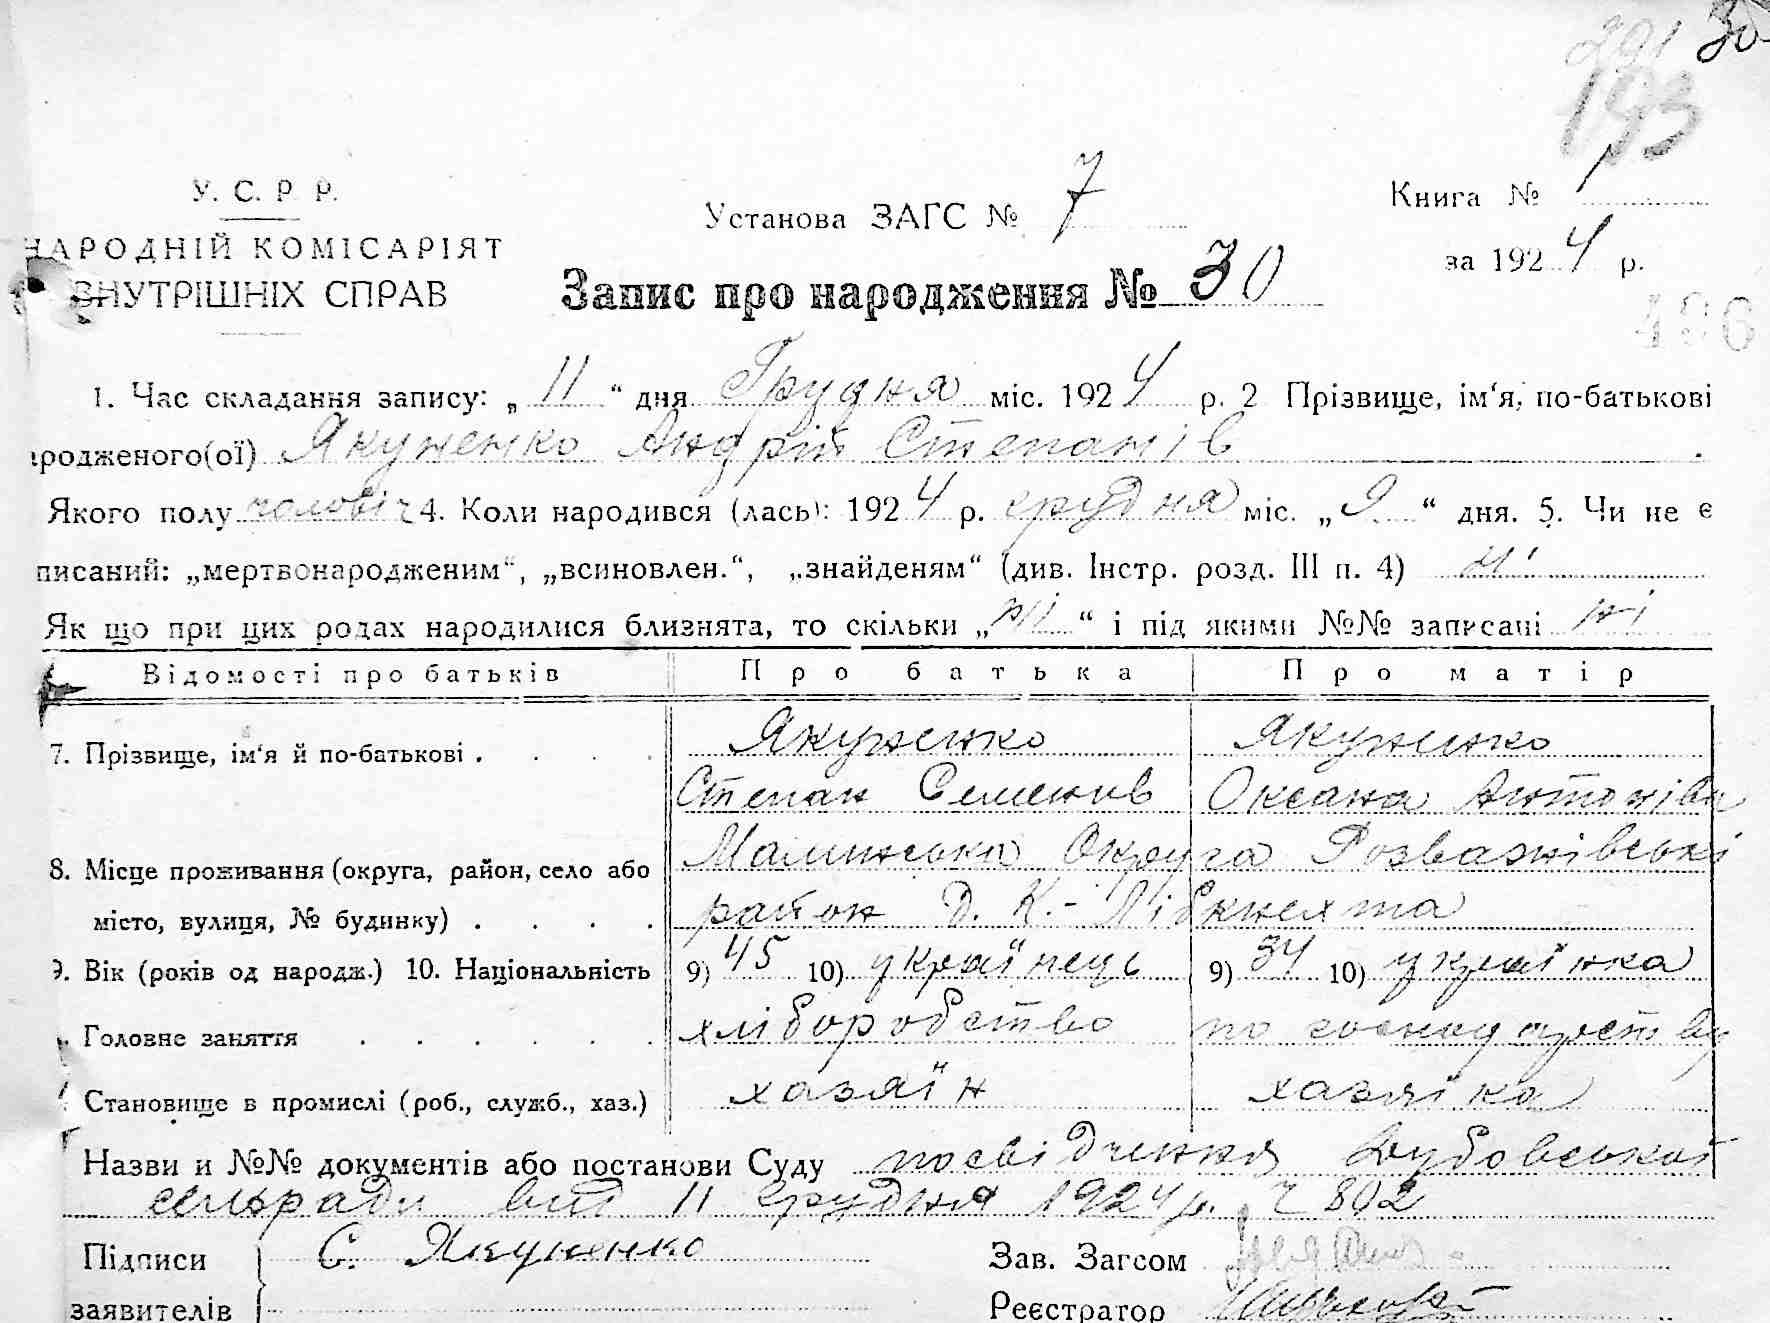 201 30
193
У. С. Р. Р.
НАРОДНІЙ КОМІСАРІЯТ
ВНУТРІШНІХ СПРАВ
Установа ЗАГС № 7
Книга № 1
за 1924 р.
Запис про народження № 30
496
1. Час складання запису: „11“ дня Грудня міс. 1924 р. 2 Прізвище, ім‘я, по-батькові
родженого(ої) Якуженко Андрій Степанів
Якого полу чоловіч 4. Коли народився (лась): 1924 р. грудня міс. „9“ дня. 5. Чи не є
писаний: „мертвонародженим“, „всиновлен.“, „знайденям“ (див. Інстр. розд. III п. 4) ні
Як що при цих родах народилися близнята, то скільки „ні“ і під якими №№ записані ні
Відомості про батьків Про батька Про матір
7. Прізвище, ім‘я й по-батькові . . . . Якуженко Якуженко
Степан Семенів Оксана Антонівна
8. Місце проживання (округа, район, село або Малинська Округа Розважівські
місто, вулиця, № будинку) . . . . район Д. К.-Лібкнехта
9. Вік (років од народж.) 10. Національність 9) 45 10) українець 9) 34 10) українка
Головне заняття . . . . . . хліборобство по господарству
Становище в промислі (роб., служб., хаз.) хазяїн хазяіка
Назви и №№ документів або постанови Суду посвідчення Дубовської
сельради від 11 грудня 1924 р. Ч 802
Підписи С. Якуженко Зав. Загсом
заявителів Реєстратор